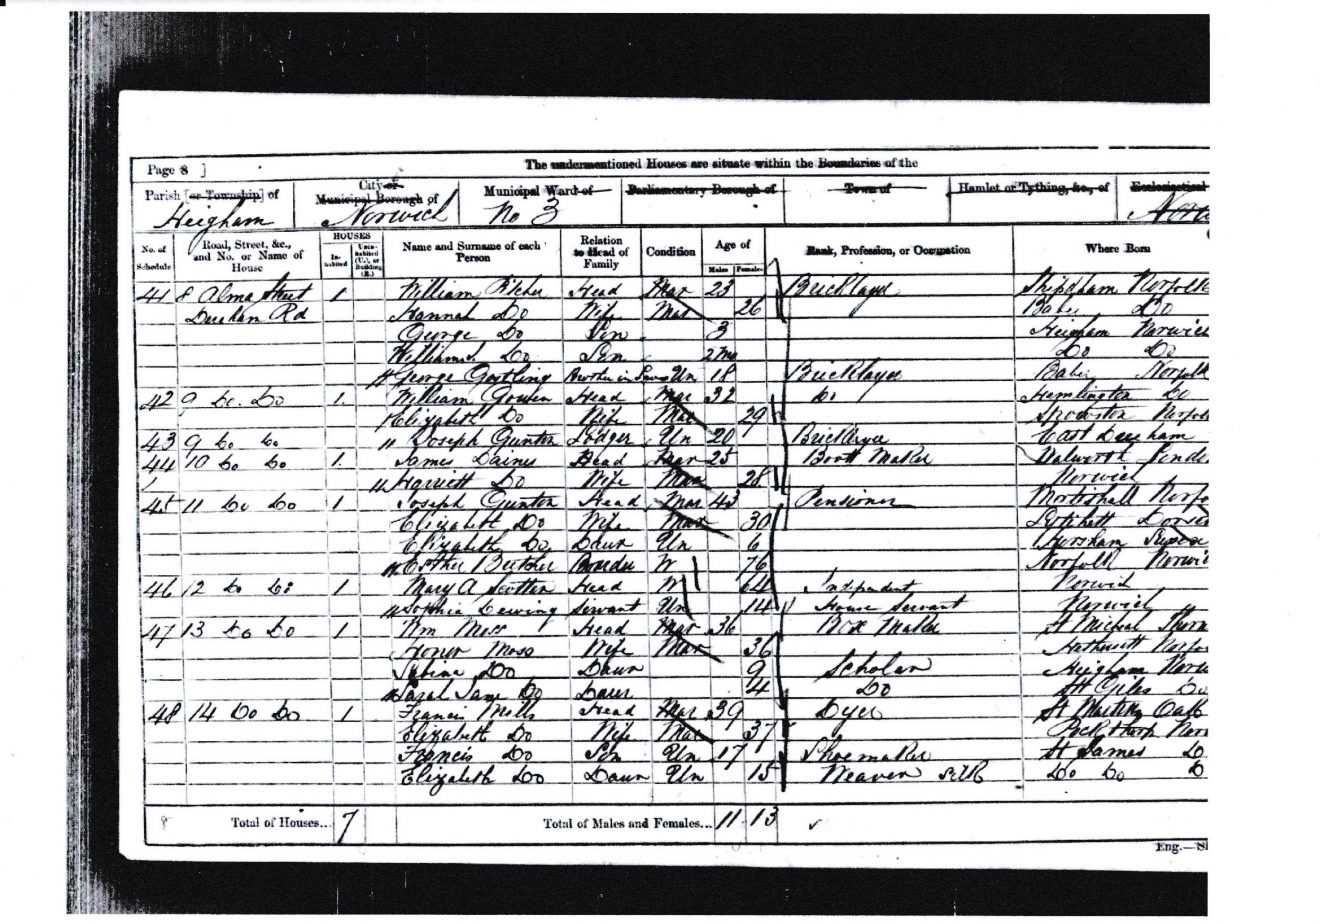 Page 8 ]
The undermentioned Houses are situate within the Boundaries of the
Parish [or Township] of
City or Municipal Borough of
Municipal Ward of
Parliamentary Borough of
Town of
Hamlet or Tything, &c., of
Ecclesiastical
Heigham Norwich No 3
No. of Schedule
Road, Street, &c., and No. or Name of House
HOUSES
Inhabited
Uninhabited (U.), or Building (B.)
Name and Surname of each Person
Relation to Head of Family
Condition
Age of
Males Females
Rank, Profession, or Occupation
Where Born
41 8 Alma Street 1 William Pilcher Head Mar 23 Bricklayer Shipdham Norfolk
Dereham Rd Hannah Do Wife Mar 26 Do
George Do Son 3 Heigham Norwich
William Do Son 2 Mo Do Do
George Gostling Brother in Law Un 18 Bricklayer Norfolk
42 9 Do Do 1 William Head Mar 32 Do Hemlington Do
Elizabeth Do Wife Mar 29 Norfol
43 9 Do Do Joseph Gunton Lodger Un 20 Bricklayer East Dereham
44 10 Do Do 1 James Daines Head Mar 25 Boot Maker Walworth
Harriett Do Wife Mar 28 Norwich
45 11 Do Do 1 Joseph Gunton Head Mar 43 Pensioner Norfo
Elizabeth Do Wife Mar 30 Lytchett Dorse
Elizabeth Do Daur Un 6 Horsham Sussex
Esther Butcher Boarder W 76 Norfolk Norwic
46 12 Do Do 1 Mary A Scotten Head W 64 Independent Norwich
Sophia Dewing Servant Un 14 House Servant Norwich
47 13 Do Do 1 Wm Moss Head Mar 36 Box Maker St Michael Thorn
Honor Moss Wife Mar 36 Hethersett Norfo
Sabina Do Daur 9 Scholar Heigham Norw
Sarah Jane Do Daur 4 Do St Giles Do
48 14 Do Do 1 Francis Mills Head Mar 39 Dyer St Martin Oak
Elizabeth Do Wife Mar 37 Pockthorpe Nor
Francis Do Son Un 17 Shoemaker St James Do
Elizabeth Do Daur Un 15 Weaver Silk Do Do D
Total of Houses... 7
Total of Males and Females... 11 13
Eng.—S